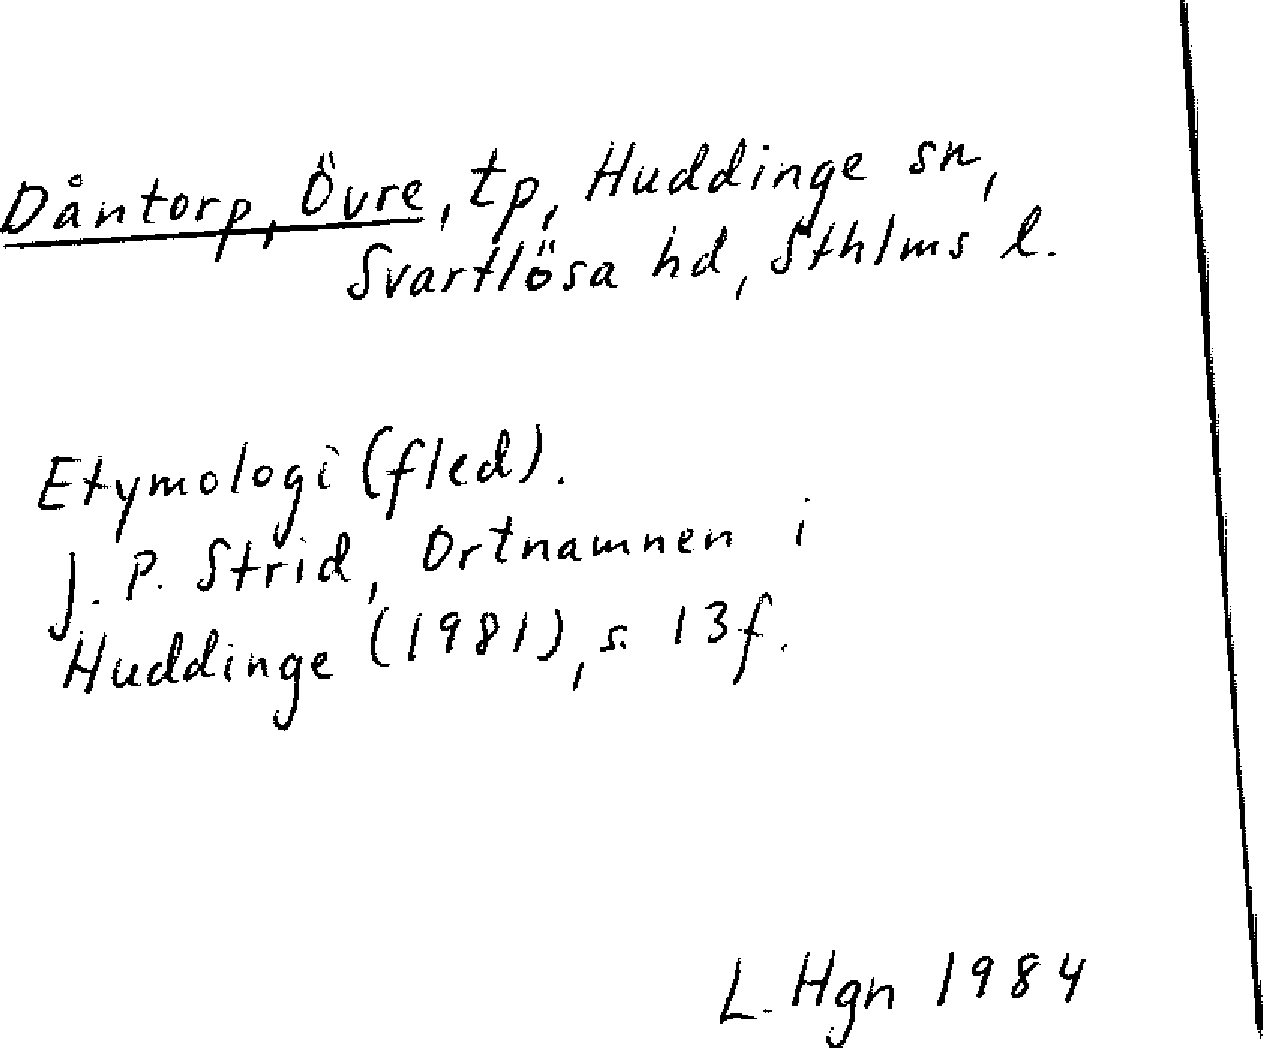 Dåntorp, Övre, tp, Huddinge sn,
Svartlösa hd, Sthlms l.
Etymologi (fled).
J. P. Strid, Ortnamnen i
Huddinge (1981), s. 13f.
L. Hgn 1984